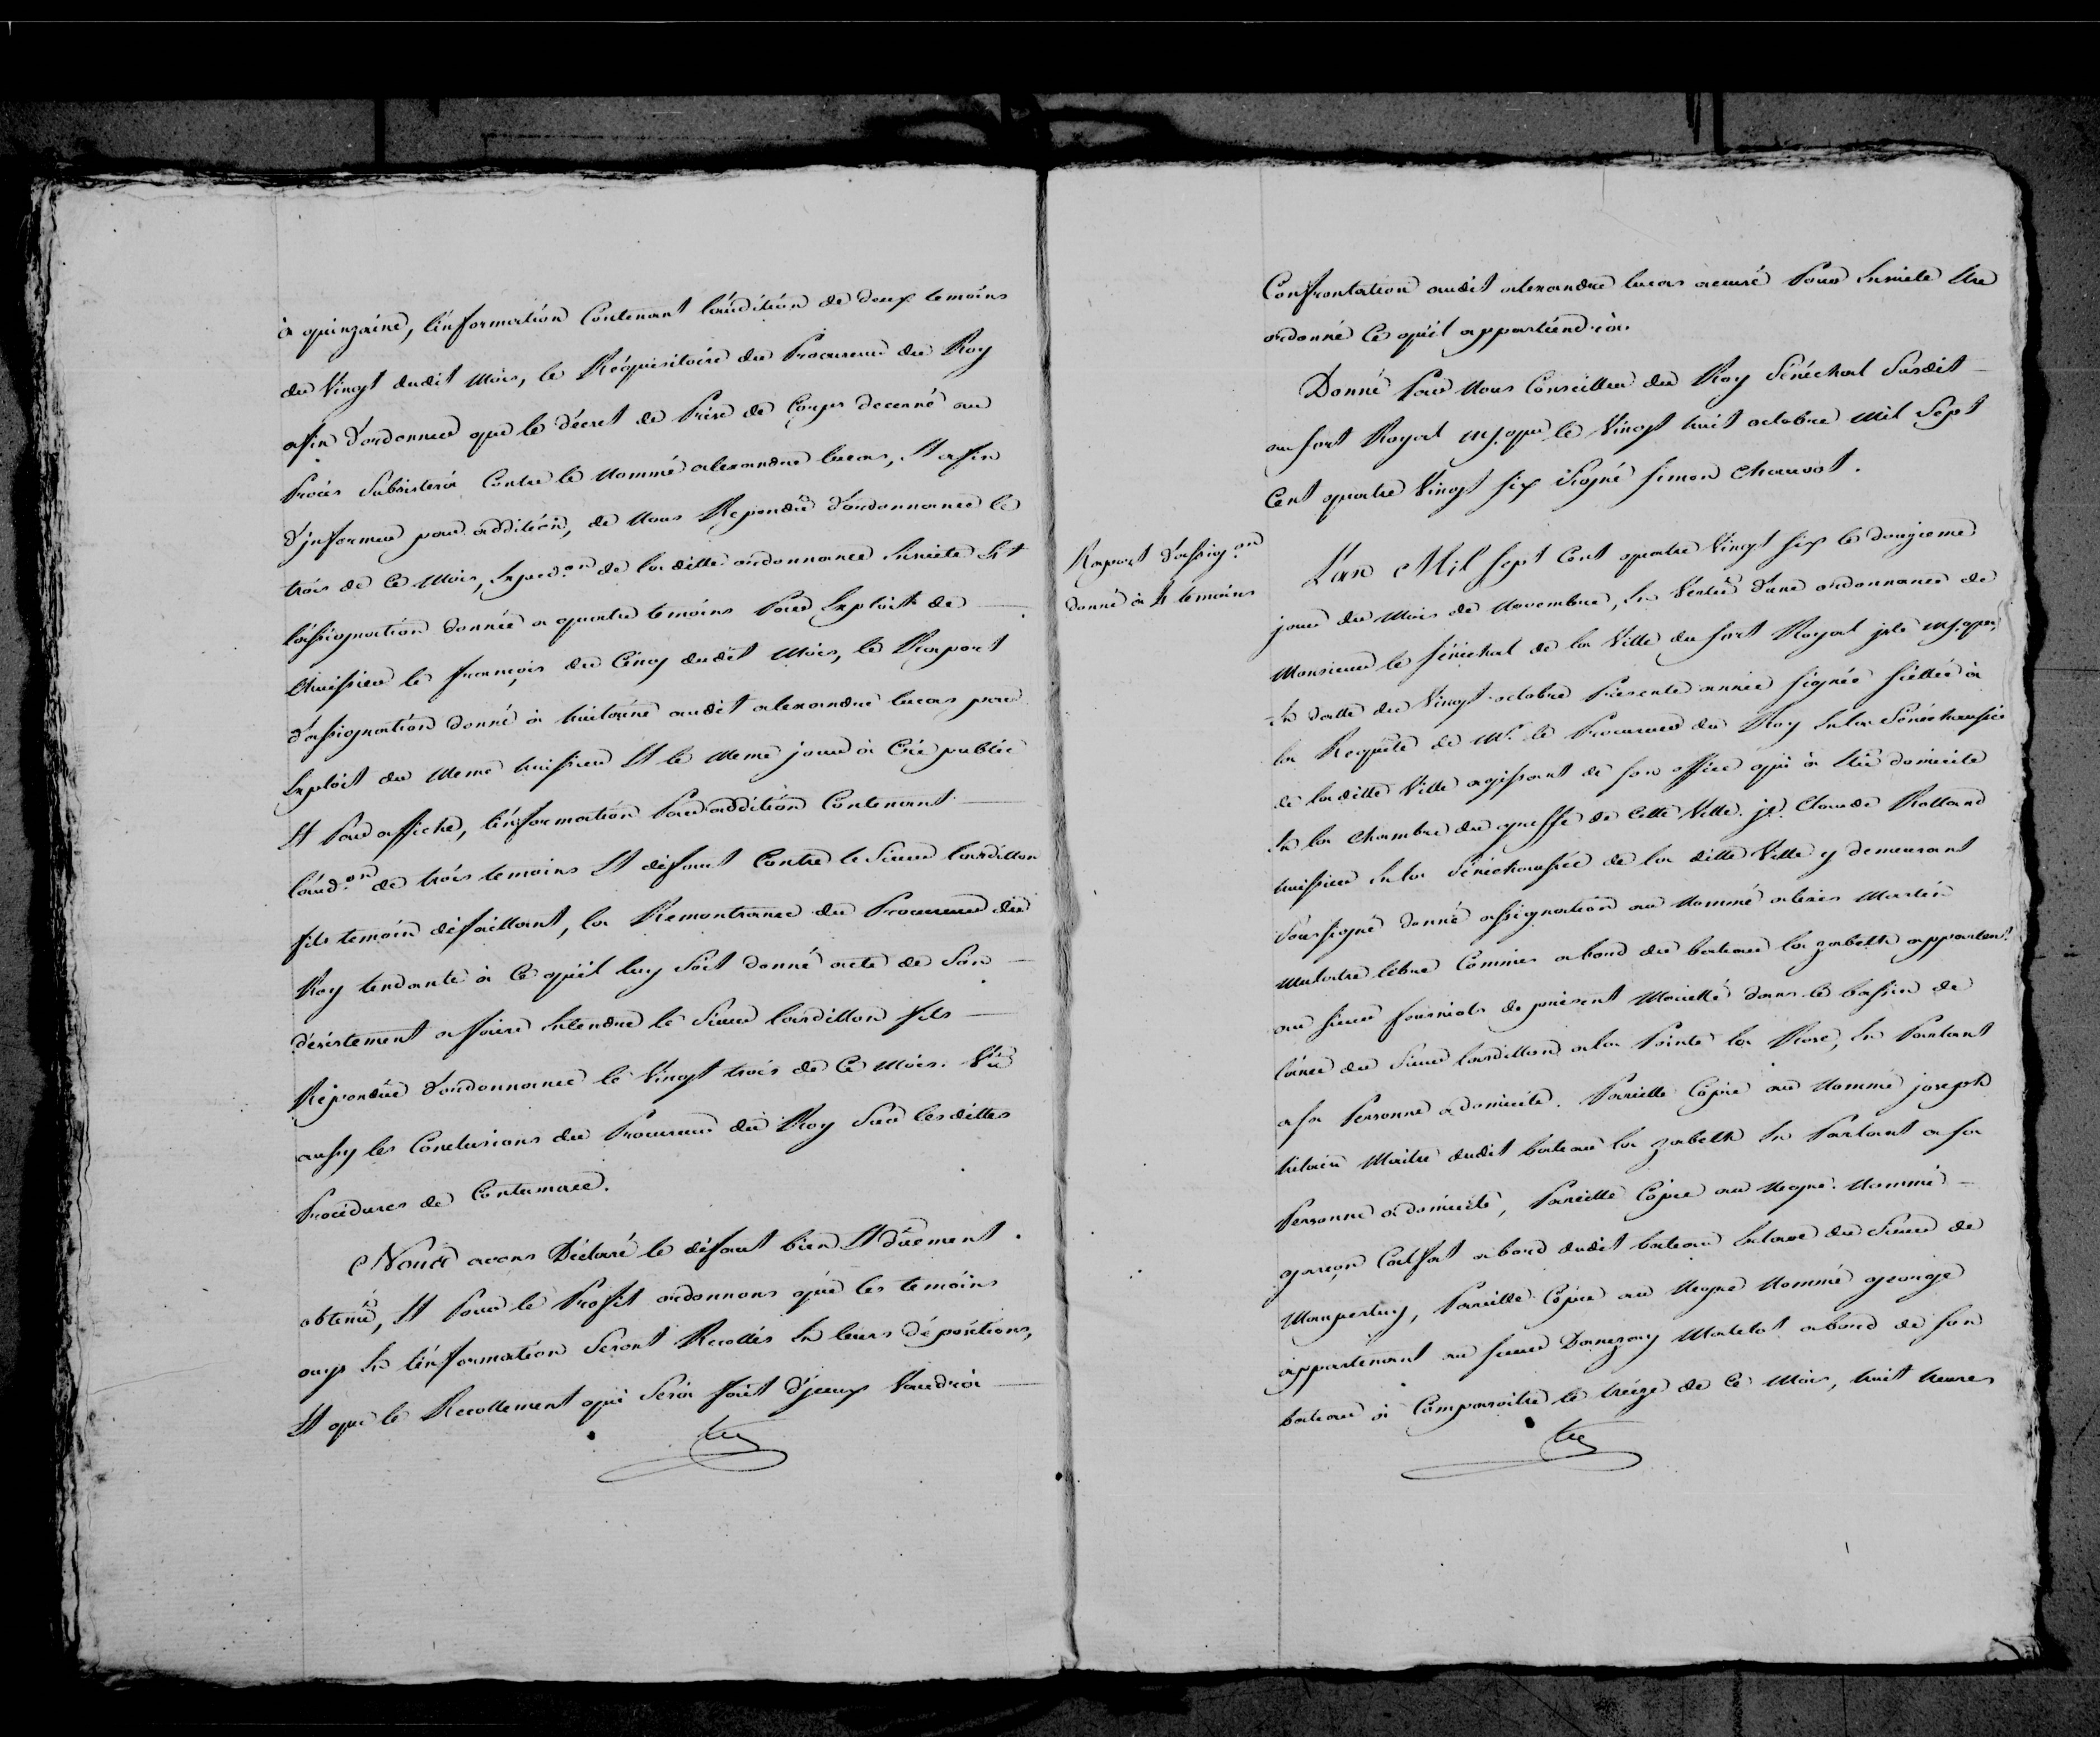 à quinzaine, l'information Contenant l'audition de deux temoins
du Vingt dudit Mois, le Réquisitoire du Procureur du Roy
afin d'ordonner que le décret de Prise de Corps decerné au
Procès Subsistera Contre le Nommé alexandre lucas, Et afin
d'jnformer par addition, de Nous Repondu d'ordonnance le
trois de Ce Mois, de la ditte ordonnance Ensuite Est
l'assignation donnée a quatre temoins Par Exploit de
Chuissier le françois du Cinq dudit Mois, le Raport
d'assignation donné à huitaine audit alexandre lucas par
Exploit du Meme huissier Et le Meme jour à Crie public
Et Par affiche, l'information Par addition Contenant
l'aud.on de trois temoins Et défaut Contre le Sieur lardillon
fils temoin défaillant, la Remontrance du Procureur du
Roy tendante à Ce qu'il luy Soit donné acte de Son
désistement a faire Entendre le Sieur lardillon fils
Répondüe d'ordonnance le Vingt trois de Ce Mois. Vu
aussy les Conclusions du Procureur du Roy Sur lesdittes
Procédures de Contumace.
Nous avons Déclaré le défaut bien Et dûement
obtenu, Et Pour le Profit ordonnons que les temoins
ouys En l'information Seront Recollés En leurs dépositions,
Et que le Recollement qui Sera fait d'jceux Vaudra
Confrontation audit alexandre lucas accusé Pour Ensuite Etre
ordonné Ce qu'il appartiendra.
Donné Par Nous Conseiller du Roy Sénéchal Susdit
au fort Royal M/que le Vingt huit octobre Mil Sept
Cent quatre Vingt Six Signé Simon Chauvot.
Raport d'assig.on
donné à 4 temoins
L'an Mil Sept Cent quatre Vingt Six le douzieme
jour du Mois de Novembre, En Vertu d'une ordonnance de
Monsieur le Sénéchal de la Ville du fort Royal jsle M/que,
En datte du Vingt octobre Presente année Signée Scellée à
la Requête de Mr. le Procureur du Roy En la Sénéchaussée
de laditte Ville agissant de Son office qui à Elû domicile
En la Chambre du greffe de Cette Ville. je. Claude Rolland
huissier En la Sénéchaussée de la ditte Ville y demeurant
Soussigné donné assignation au Nommé alexis Martin
Mulatre libre Commis abord du bateau la zabeth apparten.t
au Sieur fourniols de present Mouillé dans le bassin de
l'ance du Sieur lardillon a la Pointe la Rose, En Parlant
a Sa Personne a domicile. Pareille Copie au Nommé joseph
hilaire Maitre dudit bateau la zabeth En Parlant a Sa
Personne a domicile, Pareille Copie au Negre Nommé
garçon Calfat abord dudit bateau Esclave du Sieur de
Maupertuy, Pareille Copie au Negre Nommé george
appartenant au Sieur Matelot abord de Son
bateau à Comparoitre le treize de Ce Mois, huit heures